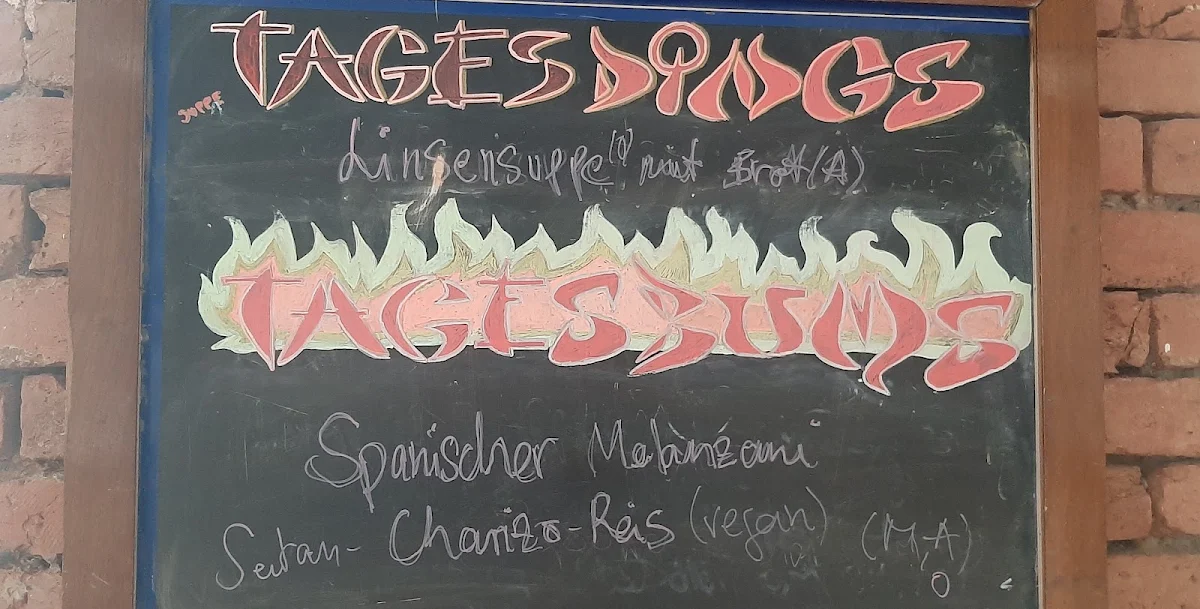 TAGESDINGS
SUPPE
Linsensuppe mit Brot (A)
TAGESBUMS
Spanischer Melanzani
Seitan- Chorizo-Reis (vegan) (M,A)
O